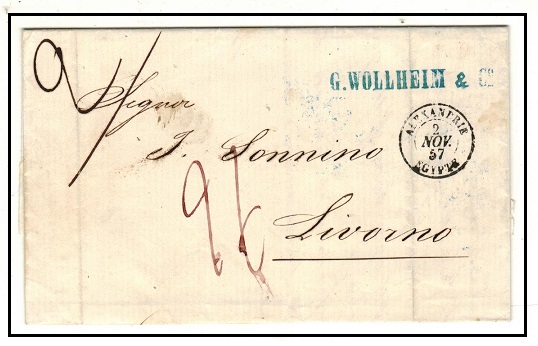 9
G. WOLLHEIM & Co
Signor
ALEXANDRIE
2
NOV.
57
EGYPTE
I. Sonnino
Livorno